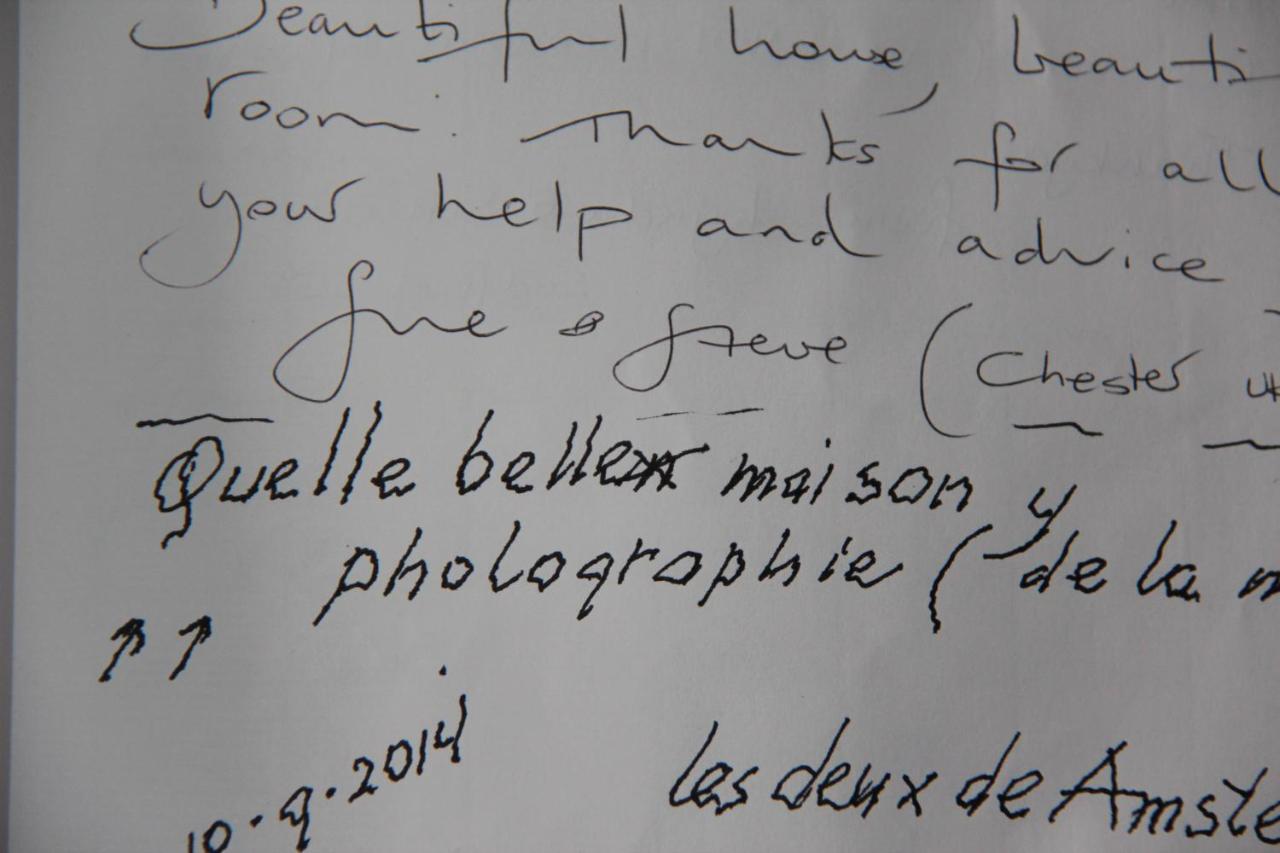 Beautiful house, beauti
room. Thanks for all
your help and advice
Sue & Steve (Chester UK
Quelle belle maison y
photographie (de la m
↑↑
10.9.2014
les deux de Amste